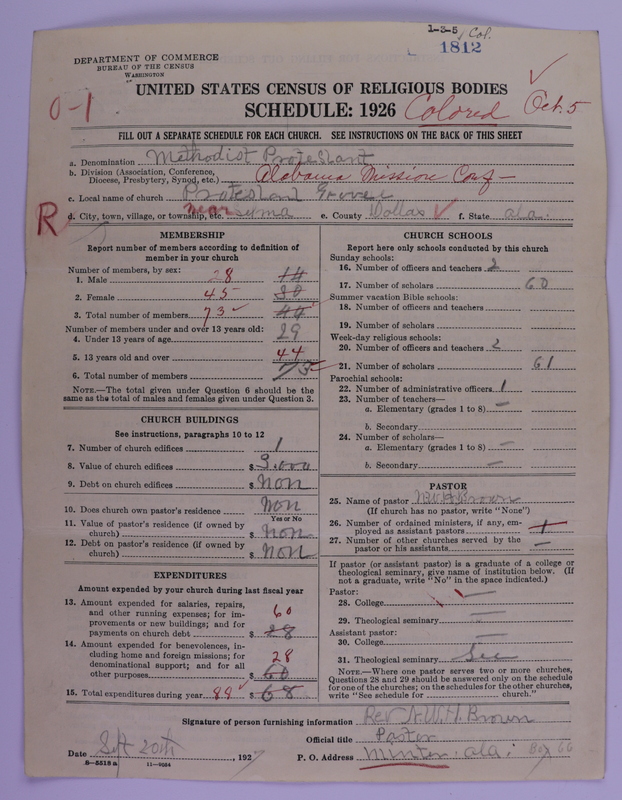 1-3-5 Col.
1812
DEPARTMENT OF COMMERCE
BUREAU OF THE CENSUS
WASHINGTON
UNITED STATES CENSUS OF RELIGIOUS BODIES
SCHEDULE: 1926 Colored Oct. 5
0-1
FILL OUT A SEPARATE SCHEDULE FOR EACH CHURCH. SEE INSTRUCTIONS ON THE BACK OF THIS SHEET
a. Denomination Methodist Protestant
b. Division (Association, Conference,
Diocese, Presbytery, Synod, etc.) Alabama Mission Conf-
c. Local name of church Protestant Grove
R d. City, town, village, or township, etc. near Syma e. County Dallas f. State ala.
MEMBERSHIP
Report number of members according to definition of
member in your church
Number of members, by sex:
1. Male 28 14
2. Female 45 30
3. Total number of members 73 44
Number of members under and over 13 years old:
4. Under 13 years of age 29
5. 13 years old and over 44
6. Total number of members 73
NOTE.—The total given under Question 6 should be the
same as the total of males and females given under Question 3.
CHURCH BUILDINGS
See instructions, paragraphs 10 to 12
7. Number of church edifices 1
8. Value of church edifices $ 3.000
9. Debt on church edifices $ non
10. Does church own pastor's residence non
Yes or No
11. Value of pastor's residence (if owned by
church) $ non
12. Debt on pastor's residence (if owned by
church) $ non
EXPENDITURES
Amount expended by your church during last fiscal year
13. Amount expended for salaries, repairs,
and other running expenses; for im-
provements or new buildings; and for
payments on church debt 60 $ 28
14. Amount expended for benevolences, in-
cluding home and foreign missions; for
denominational support; and for all
other purposes 28 $ 60
15. Total expenditures during year 88 $ 68
CHURCH SCHOOLS
Report here only schools conducted by this church
Sunday schools:
16. Number of officers and teachers 2
17. Number of scholars 60
Summer vacation Bible schools:
18. Number of officers and teachers
19. Number of scholars
Week-day religious schools:
20. Number of officers and teachers 2
21. Number of scholars 61
Parochial schools:
22. Number of administrative officers 1
23. Number of teachers—
a. Elementary (grades 1 to 8) —
b. Secondary
24. Number of scholars—
a. Elementary (grades 1 to 8) —
b. Secondary —
PASTOR
25. Name of pastor N.W.H. Brown
(If church has no pastor, write "None")
26. Number of ordained ministers, if any, em-
ployed as assistant pastors 1
27. Number of other churches served by the
pastor or his assistants —
If pastor (or assistant pastor) is a graduate of a college or
theological seminary, give name of institution below. (If
not a graduate, write "No" in the space indicated.)
Pastor:
28. College —
29. Theological seminary —
Assistant pastor:
30. College —
31. Theological seminary
NOTE.—Where one pastor serves two or more churches,
Questions 28 and 29 should be answered only on the schedule
for one of the churches; on the schedules for the other churches,
write "See schedule for church."
Signature of person furnishing information Rev N.W.H. Brown
Official title Pastor
Date Sept 20th, 1927 P. O. Address Minter. ala. Box 66
8-5518 a 11-9054